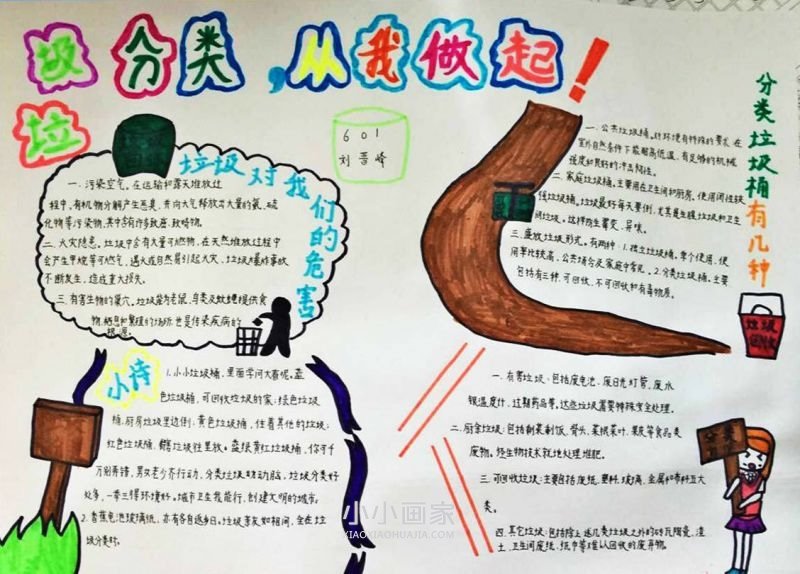 垃圾分类,从我做起!
601
刘晋峰
垃圾对我们的危害
一.污染空气。在运输和露天堆放过
程中,有机物分解产生恶臭,并向大气释放出大量的氨、硫
化物等污染物,其中含有许多致癌、致畸物。
二.火灾隐患。垃圾中含有大量可燃物,在天然堆放过程中
会产生甲烷等可燃气,遇火或自然易引起火灾、垃圾爆炸事故
不断发生,造成重大损失。
三.有害生物的巢穴。垃圾能为老鼠、鸟类及蚊蝇提供食
物、栖息和繁殖的场所也是传染疾病的
根源。
小诗
1.小小垃圾桶,里面学问大着呢。蓝
色垃圾桶,可回收垃圾的家;绿色垃圾
桶,厨房垃圾边倒;黄色垃圾桶,住着其他的垃圾;
红色垃圾桶,有害垃圾往里放。蓝绿黄红垃圾桶,你可千
万别弄错,男女老少齐行动,分类垃圾动脑,垃圾分类好
处多,一举三得环境好。城市卫生我能行,创建文明的城市。
2.香蕉电池玻璃纸,亦有各自返乡日。垃圾荟友如相问,全在垃
圾分类时。
分类垃圾桶有几种
一.公共垃圾桶。对环境有特殊的要求,在
室外自然条件下能耐高低温,有足够的机械
强度和良好的冲击韧性。
二.家庭垃圾桶。主要用在卫生间和厨房。使用闭性较
强垃圾桶。垃圾最好每天要倒,尤其是生腥垃圾和卫生
间垃圾。这样防生霉变、异味。
三.盛放垃圾形式。有两种:1.独立垃圾桶。单个使用,使
用率比较高,公共场合及家庭中常见。2.分类垃圾桶。主要
包括有三种,可回收、不可回收和有毒物质。
垃圾
回收
一.有害垃圾:包括废电池、废日光灯管、废水
银温度计、过期药品等。这些垃圾需要特殊安全处理。
二.厨余垃圾:包括剩菜剩饭、骨头、菜根菜叶、果皮等食品类
废物。经生物技术就地处理堆肥。
三.可回收垃圾:主要包括废纸、塑料、玻璃、金属和布料五大
类。
四.其它垃圾:包括除上述几类垃圾之外的砖瓦陶瓷、渣
土、卫生间废纸、纸巾等难以回收的废弃物。
分类
小小画家
XIAOXIAOHUAJIA.COM